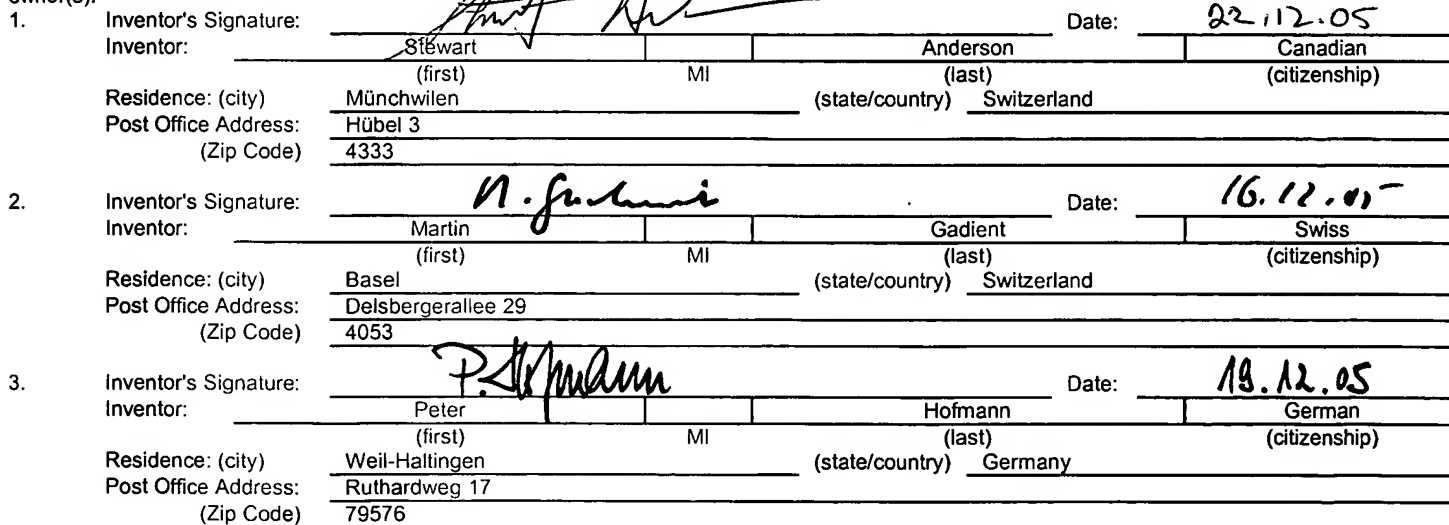 owner(s).
1. Inventor's Signature: Date: 22.12.05
Inventor: Stewart Anderson Canadian
(first) MI (last) (citizenship)
Residence: (city) Münchwilen (state/country) Switzerland
Post Office Address: Hübel 3
(Zip Code) 4333
2. Inventor's Signature: Date: 16.12.05
Inventor: Martin Gadient Swiss
(first) MI (last) (citizenship)
Residence: (city) Basel (state/country) Switzerland
Post Office Address: Delsbergerallee 29
(Zip Code) 4053
3. Inventor's Signature: P. Hofmann Date: 19.12.05
Inventor: Peter Hofmann German
(first) MI (last) (citizenship)
Residence: (city) Weil-Haltingen (state/country) Germany
Post Office Address: Ruthardweg 17
(Zip Code) 79576